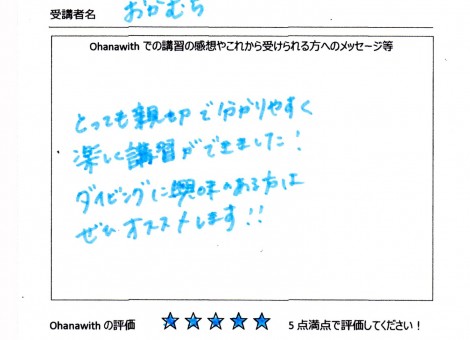 受講者名 おかむち
Ohanawith での講習の感想やこれから受けられる方へのメッセージ等
とっても親切で分かりやすく
楽しく講習ができました!
ダイビングに興味のある方は
ぜひオススメします!!
Ohanawith の評価 ★★★★★ 5 点満点で評価してください!